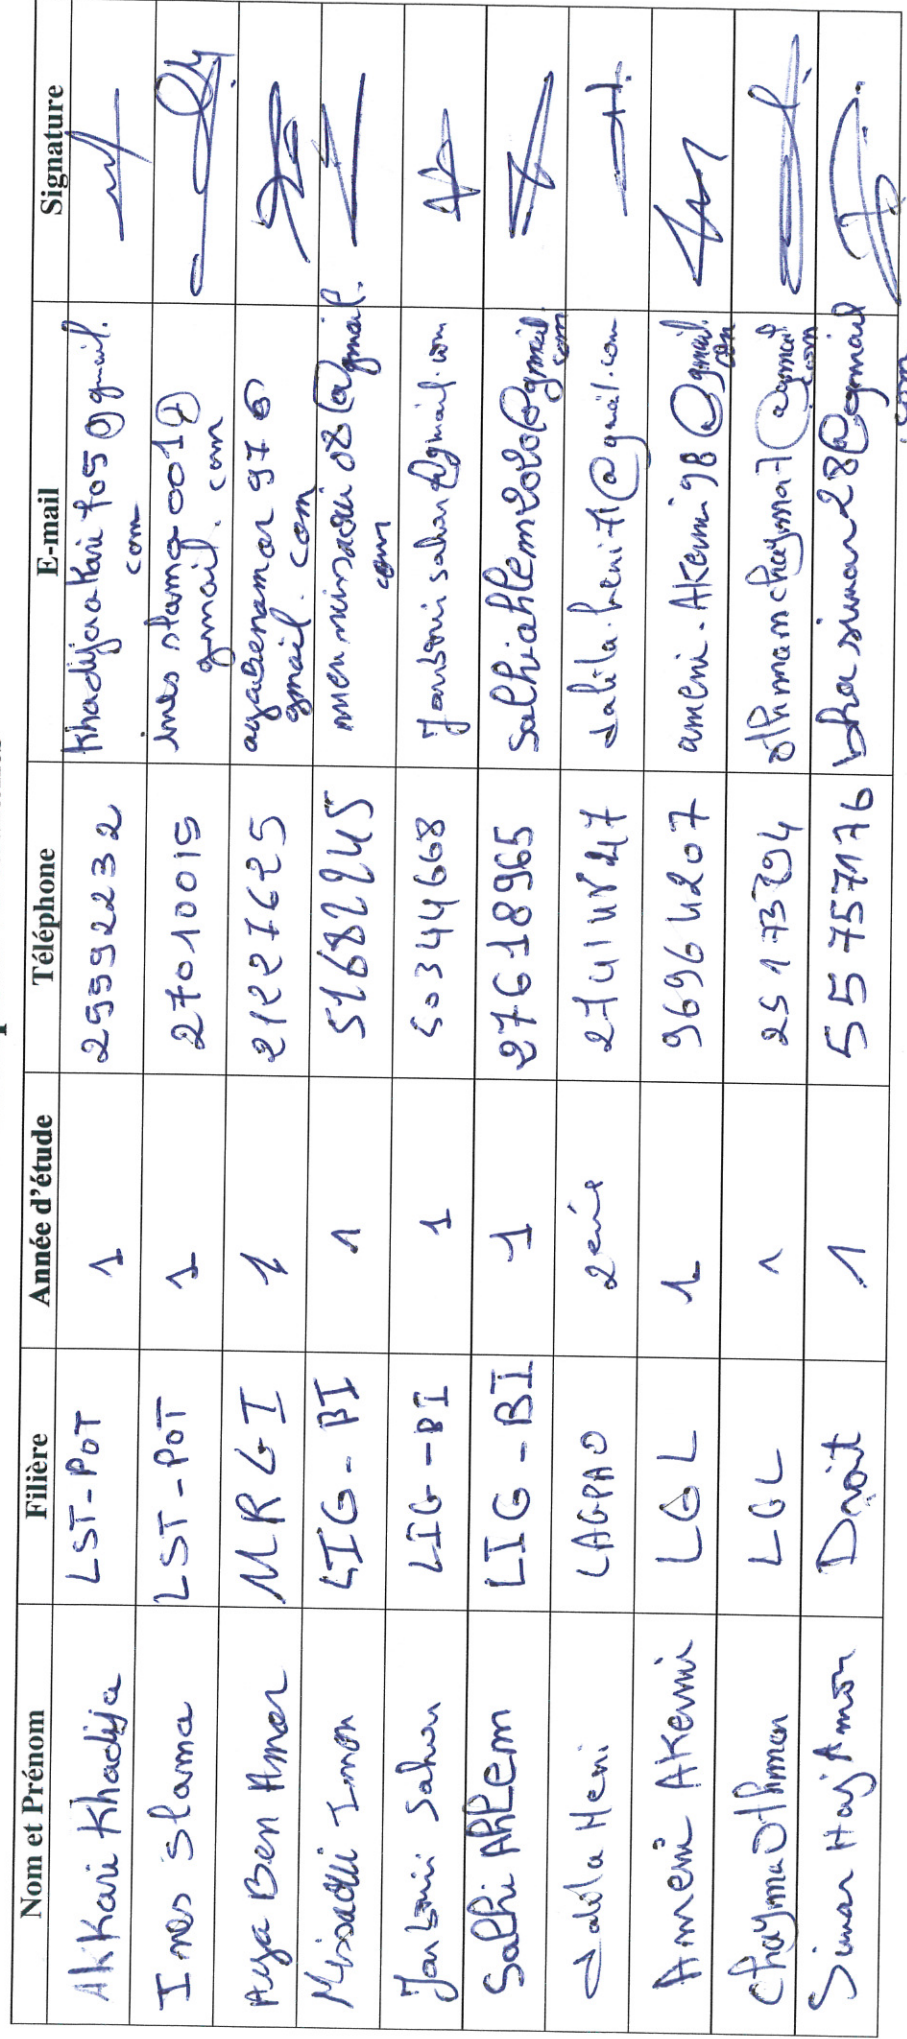 Nom et Prénom Filière Année d'étude Téléphone E-mail Signature
Akkari Khadija LST-POT 1 25592232 khadijaakkari705@gmail.
com
Ines Slama LST-POT 1 27010015 ines slama001@
gmail.com
Aya Ben Amor MRGI 1 21227625 ayabenamor976
gmail.com
Missaoui Imen LIG-BI 1 51682245 imenmissaoui08@gmail.
com
Janbouii Sahar LIG-BI 1 50344668 Janbouisahar@gmail.com
Salhi Ahlem LIG-BI 1 27618965 salhiahlem2020@gmail.
com
dalila Heni LAGPAO 2eme dalila.heni71@gmail.com
Ameni Akermi LGL 1 96964207 ameni.Akermi98@gmail.
com
Chayma Othman LGL 1 othmanchayma7@gmail
com
Simar Haj Amor Droit 1 55757176 bhasimar28@gmail
.com